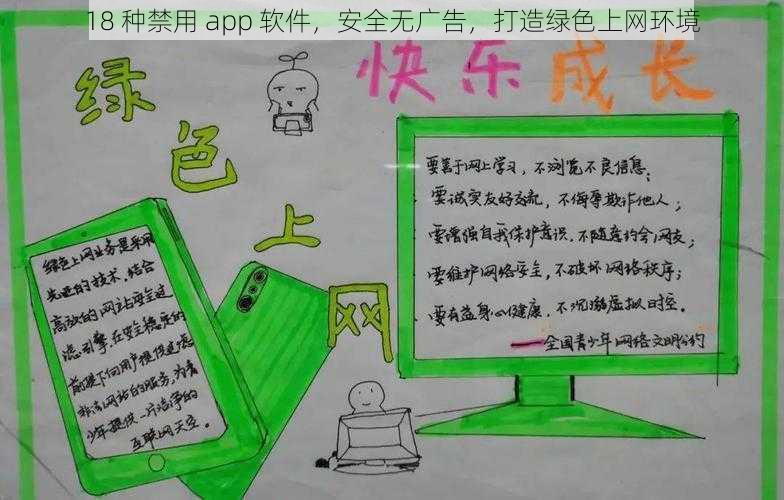 18 种禁用 app 软件，安全无广告，打造绿色上网环境
绿色上网
快乐成长
绿色上网业务是采用
先进的技术，结合
高效的网站安全过
滤引擎在安全稳定的
前提下向用户提供过滤
非法网站的服务，为青
少年提供一片洁净的
互联网天空。
要善于网上学习，不浏览不良信息；
要诚实友好交流，不侮辱欺诈他人；
要增强自我保护意识，不随意约会网友；
要维护网络安全，不破坏网络秩序；
要有益身心健康，不沉溺虚拟时空。
——全国青少年网络文明公约